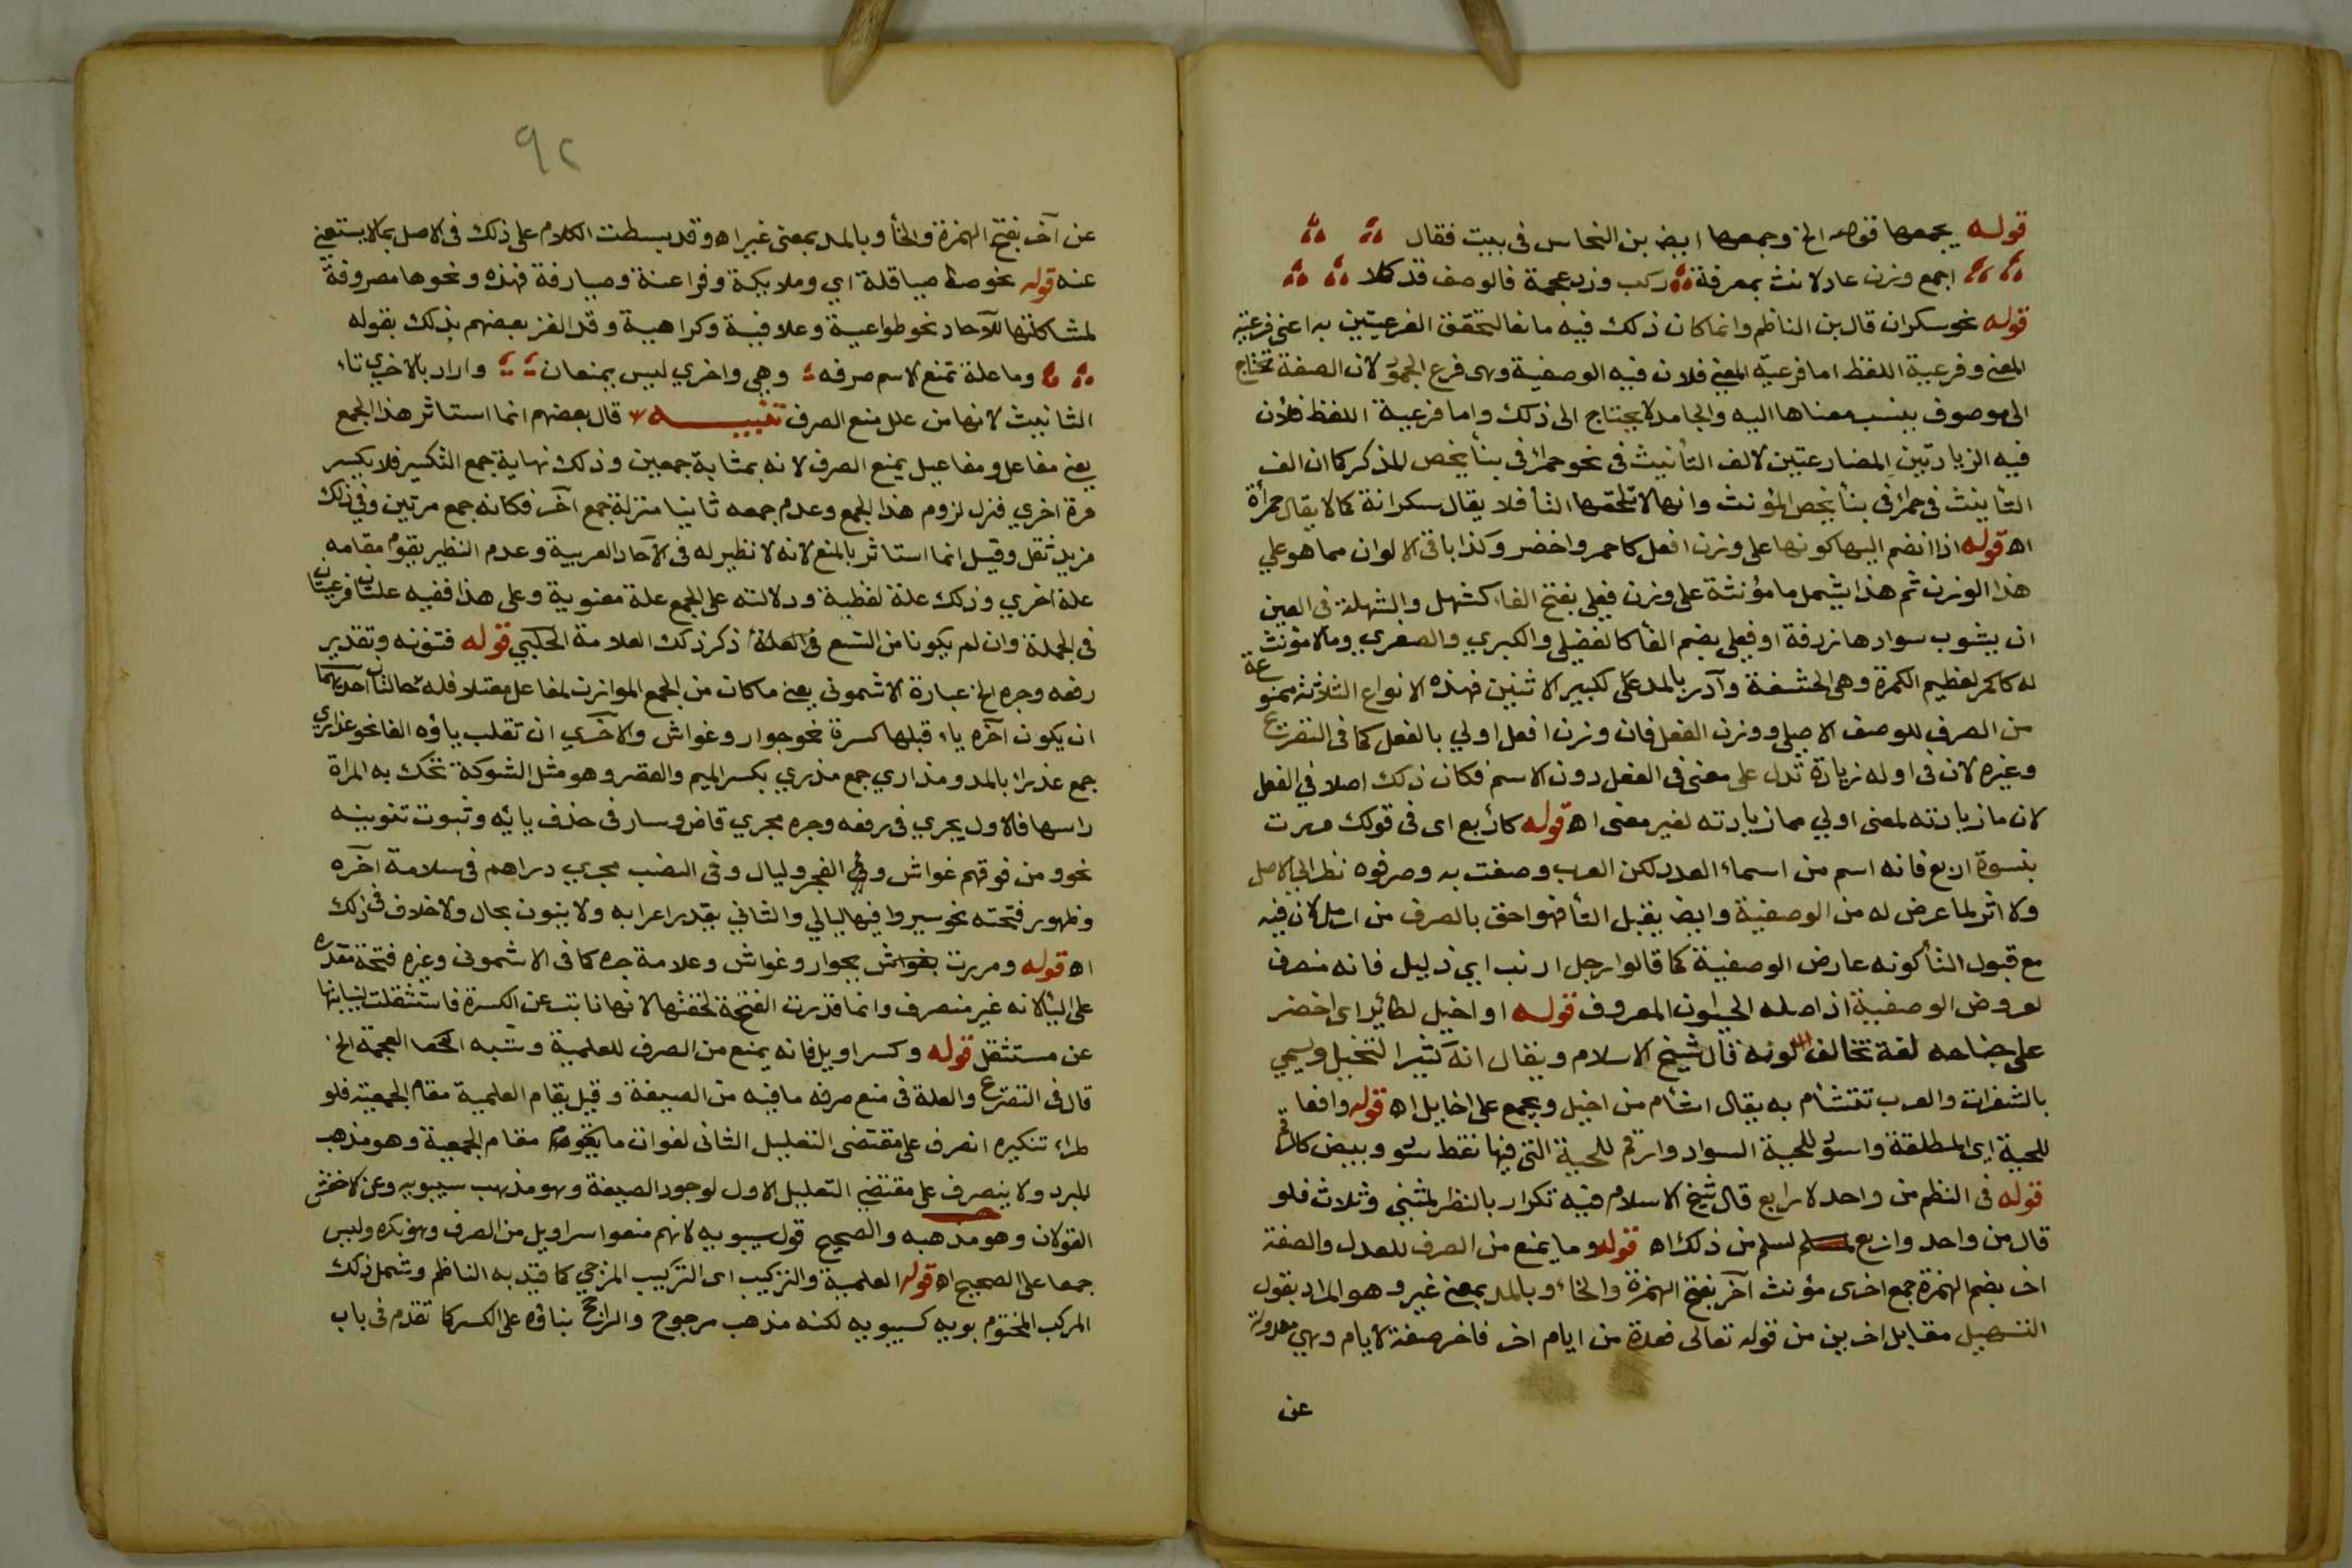 قوله يجمعها قوله الخ وجمعها ايضا بن النحاس فى بيت فقال
اجمع وزن عادلا انث بمعرفة ركب وزد عجمة فالوصف قد كملا
قوله نحو سكران قال بن الناظم وانما كان ذلك فيه مانعا لتحقق الفرعيتين به اعنى فرعية
المعنى وفرعية اللفظ اما فرعية المعنى فلان فيه الوصفية وهى فرع الجمود لان الصفة تحتاج
الى موصوف ينسب معناها اليه والجامد لا يحتاج الى ذلك واما فرعية اللفظ فلأن
فيه الزيادتين المضارعتين لالف التأنيث فى نحو حمراء فى بناء يخص المذكر كما ان الف
التأنيث فى حمراء فى بناء يخص المؤنث وانها لا تلحقها التاء فلا يقال سكرانة كما لا يقال حمرأة
اه قوله اذا انضم اليها كونها على وزن افعل كاحمر واخضر وكذا باقى الالوان مما هو على
هذا الوزن ثم هذا يشمل ما مؤنثة على وزن فعلى بفتح الفاء كشهل والشهلة فى العين
ان يشوب سوادها زرقة او فعلى بضم الفاء كالفضلى والكبري والصغري وما لا مؤنث
له كاكمر لعظيم الكمرة وهى الحشفة وآدر بالمد على كبير الانثيين فهذه الانواع الثلاثة ممنوعة
من الصرف للوصف الاصلى ووزن الفعل فان وزن افعل اولي بالفعل كما فى التصريح
وغيره لان فى اوله زيادة تدل على معنى فى الفعل دون الاسم فكان ذلك اصلا في الفعل
لان ما زيادته لمعنى اولي مما زيادته لغير معنى اه قوله كأربع اى فى قولك مررت
بنسوة اربع فانه اسم من اسماء العدد لكن العرب وصفت به وصرفوه نظرا الى الاصل
ولا اثر لما عرض له من الوصفية وايضا يقبل التاء فهو احق بالصرف من ارمل لان فيه
مع قبول التاء كونه عارض الوصفية كما قالوا رجل ارنب اي ذليل فانه منصرف
لعروض الوصفية اذ اصله الحيوان المعروف قوله او اخيل لطائر اى اخضر
على جناحه لمعة تخالف لونه قال شيخ الاسلام ويقال انه كثير التخيل ويسمي
بالشقراق والعرب تتشأم به يقال اشأم من اخيل ويجمع على اخايل اه قوله وافعا
للحية اى المطلقة واسود للحية السوداء وارقم للحية التى فيها نقط سود وبيض كالرقم
قوله فى النظم من واحد لاربع قال شيخ الاسلام فيه تكرار بالنظر لمثنى وثلاث فلو
قال من واحد واربع لسلم من ذلك اه قوله وما يمنع من الصرف للعدل والصفة
اخر بضم الهمزة جمع اخرى مؤنث آخر بفتح الهمزة والخاء وبالمد بمعنى غير وهو المراد بقول
التسهيل مقابل اخرين من قوله تعالى فعدة من ايام اخر فاخر صفة لايام وهي معدولة
عن
٩٢
عن آخر بفتح الهمزة والخاء وبالمد بمعنى غير اه وقد بسطت الكلام على ذلك فى الاصل بما لا يستغنى
عنه قوله نحو صياقلة اي وملايكة وفراعنة وصيارفة فهذه ونحوها مصروفة
لمشاكلتها للآحاد نحو طواعية وعلانية وكراهية وقد الغز بعضهم بذلك بقوله
وما علة تمنع الاسم صرفه وهي واخري ليس يمنعان واراد بالاخري تاء
التانيث لانها من علل منع الصرف تنبيه قال بعضهم انما استاثر هذا الجمع
يعنى مفاعل ومفاعيل بمنع الصرف لانه بمثابة جمعين وذلك نهاية جمع التكسير فلا يكسر
مرة اخري فنزل لزوم هذا الجمع وعدم جمعه ثانيا منزلة جمع آخر فكانه جمع مرتين وفى ذلك
مزيد ثقل وقيل انما استاثر بالمنع لانه لا نظير له فى الآحاد العربية وعدم النظير يقوم مقامه
علة اخري وذلك علة لفظية ودلالته على الجمع علة معنوية وعلى هذا ففيه علتان فرعيتان
فى الجملة وان لم يكونا من التسع ذكر ذلك العلامة الحلبي قوله فتنونه وتقدير
رفعه وجره الخ عبارة الاشمونى يعنى ما كان من الجمع الموازن لمفاعل معتلا فله حالتان احداهما
ان يكون آخره ياء قبلها كسرة نحو جوار وغواش والاخرى ان تقلب ياؤه الفا نحو عذارى
جمع عذراء بالمد ومداري جمع مدري بكسر الميم والقصر وهو مثل الشوكة تحك به المراة
راسها فالاول يجري فى رفعه وجره مجري قاض وسار فى حذف يائه وثبوت تنوينه
نحو ومن فوقهم غواش والفجر وليال وفى النصب مجري دراهم فى سلامة آخره
وظهور فتحته نحو سيروا فيها ليالي والثاني يقدر اعرابه ولا ينون بحال ولا خلاف فى ذلك
اه قوله ومررت بجوار وغواش وعلامة جره كما فى الاشمونى وغيره فتحة مقدرة
على الياء لانه غير منصرف وانما قدرت الفتحة لخفتها لانها نابت عن الكسرة فاستثقلت لنيابتها
عن مستثقل قوله وكسراويل فانه يمنع من الصرف للعلمية وشبه العجمة الخ
قال فى التصريح والعلة فى منع صرفه ما فيه من الصيغة وقيل بقيام العلمية مقام الجمعية فلو
طراء تنكيره انصرف على مقتضى التعليل الثانى لفوات ما يقوم مقام الجمعية وهو مذهب
المبرد ولا ينصرف على مقتضى التعليل الاول لوجود الصيغة وهو مذهب سيبويه وعن الاخفش
القولان وهو مذهبه والصحيح قول سيبويه لانهم منعوا سراويل من الصرف وهو نكره وليس
جمعا على الصحيح اه قوله العلمية والتركيب اى التركيب المزجي كما قيد به الناظم وشمل ذلك
المركب المختوم بويه كسيبويه لكنه مذهب مرجوح والراجح بناؤه على الكسر كما تقدم فى باب